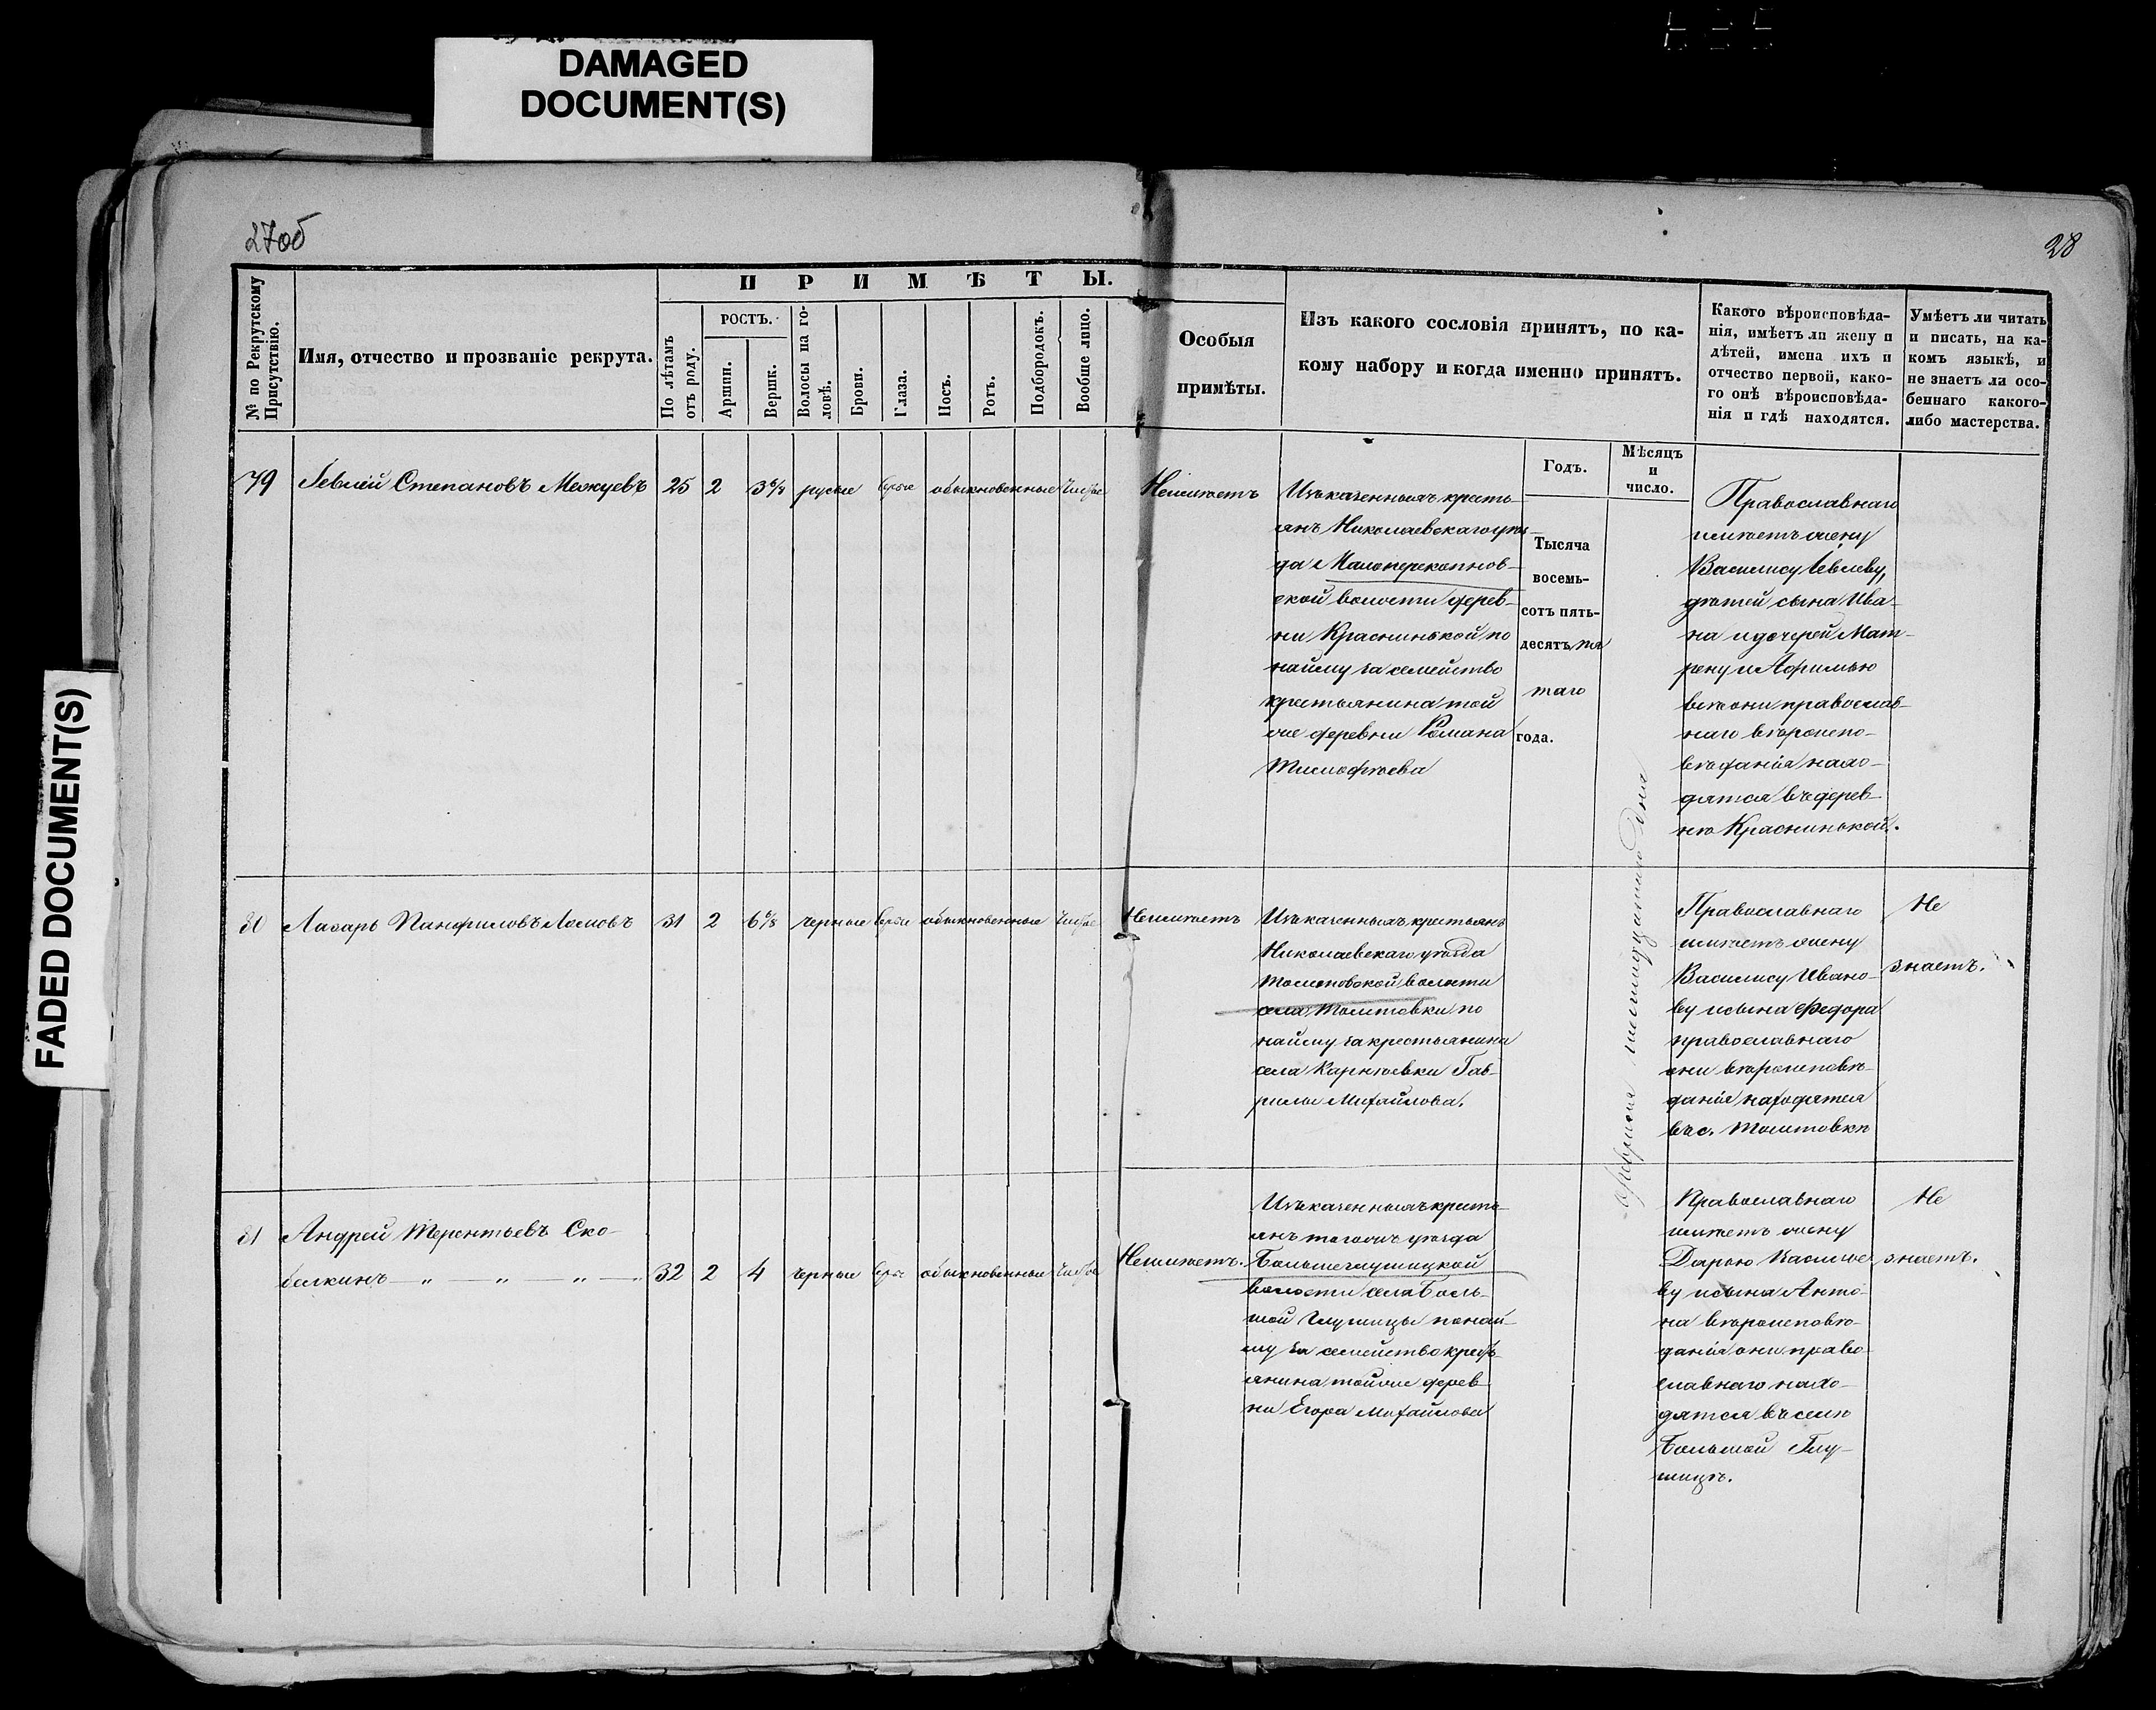 DAMAGED
DOCUMENT(S)
FADED DOCUMENT(S)
27об
28
№ по Рекрутскому
Присутствію.
Имя, отчество и прозваніе рекрута.
ПРИМѢТЫ.
По лѣтамъ
отъ роду.
РОСТЪ.
Аршин.
Вершк.
Волосы на го-
ловѣ.
Брови.
Глаза.
Носъ.
Ротъ.
Подбородокъ.
Вообще лицо.
Особыя
примѣты.
Изъ какого сословія принятъ, по ка-
кому набору и когда именно принятъ.
Какого вѣроисповѣда-
нія, имѣетъ ли жену и
дѣтей, имена ихъ и
отчество первой, како-
го онѣ вѣроисповѣда-
нія и гдѣ находятся.
Умѣетъ ли читать
и писать, на ка-
комъ языкѣ, и
не знаетъ ли осо-
беннаго какого-
либо мастерства.
Годъ.
Мѣсяцъ
и
число.
79 Іевлей Степановъ Межуевъ 25 2 3 6/8 русые серые обыкновенные чистое
Неимѣетъ
Изъ казенныхъ кресть-
янъ Николаевскаго уѣз-
да Малоперекопнов-
ской волости дерев-
ни Красинькой по
найму за семейство
крестьянина той
же деревни Романа
Тимофѣева
Тысяча
восемь-
сотъ пять-
десятъ пя
таго
года.
Православнаго
имѣетъ жену
Василису Іевлеву,
дѣтей сына Ива-
на и дочерей Мат-
рену и Афимью
всѣ они православ-
наго вѣроиспо-
вѣданія нахо-
дятся въ дерев-
нѣ Красинькой.
80 Лазарь Панфиловъ Ломовъ 31 2 6 6/8 черные серые обыкновенные чистое
Неимѣетъ
Изъ казенныхъ крестьянъ
Николаевскаго уѣзда
волости
села по
найму за крестьянина
села Карнѣевки Гав-
рилы Михайлова.
Православнаго
имѣетъ жену
Василису Ивано-
ву и сына Федора
православнаго
они вѣроисповѣ-
данія находятся
въ с.
Не
знаетъ.
февраля дня
81 Андрей Терентьевъ Ско-
белкинъ — „ — „ — „ — 32 2 4 черные серые обыкновенные чистое
Неимѣетъ.
Изъ казенныхъ кресть-
янъ тогоже уѣзда
Большеглушицкой
волости села Боль-
шой Глушицы по най-
му за семейство крест-
янина тойже дерев-
ни Егора Михайлова
Православнаго
имѣетъ жену
Дарью Василье-
ву и сына Анто-
на вѣроисповѣ-
данія они право-
славнаго нахо-
дятся въ селѣ
Большой Глу-
шицѣ.
Не
знаетъ.